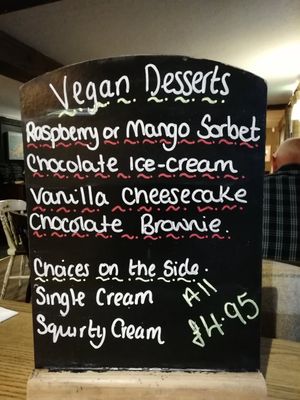 Vegan Desserts
Raspberry or Mango Sorbet
Chocolate Ice-cream
Vanilla Cheesecake
Chocolate Brownie.
Choices on the Side.
Single Cream
Squirty Cream
All
£4.95